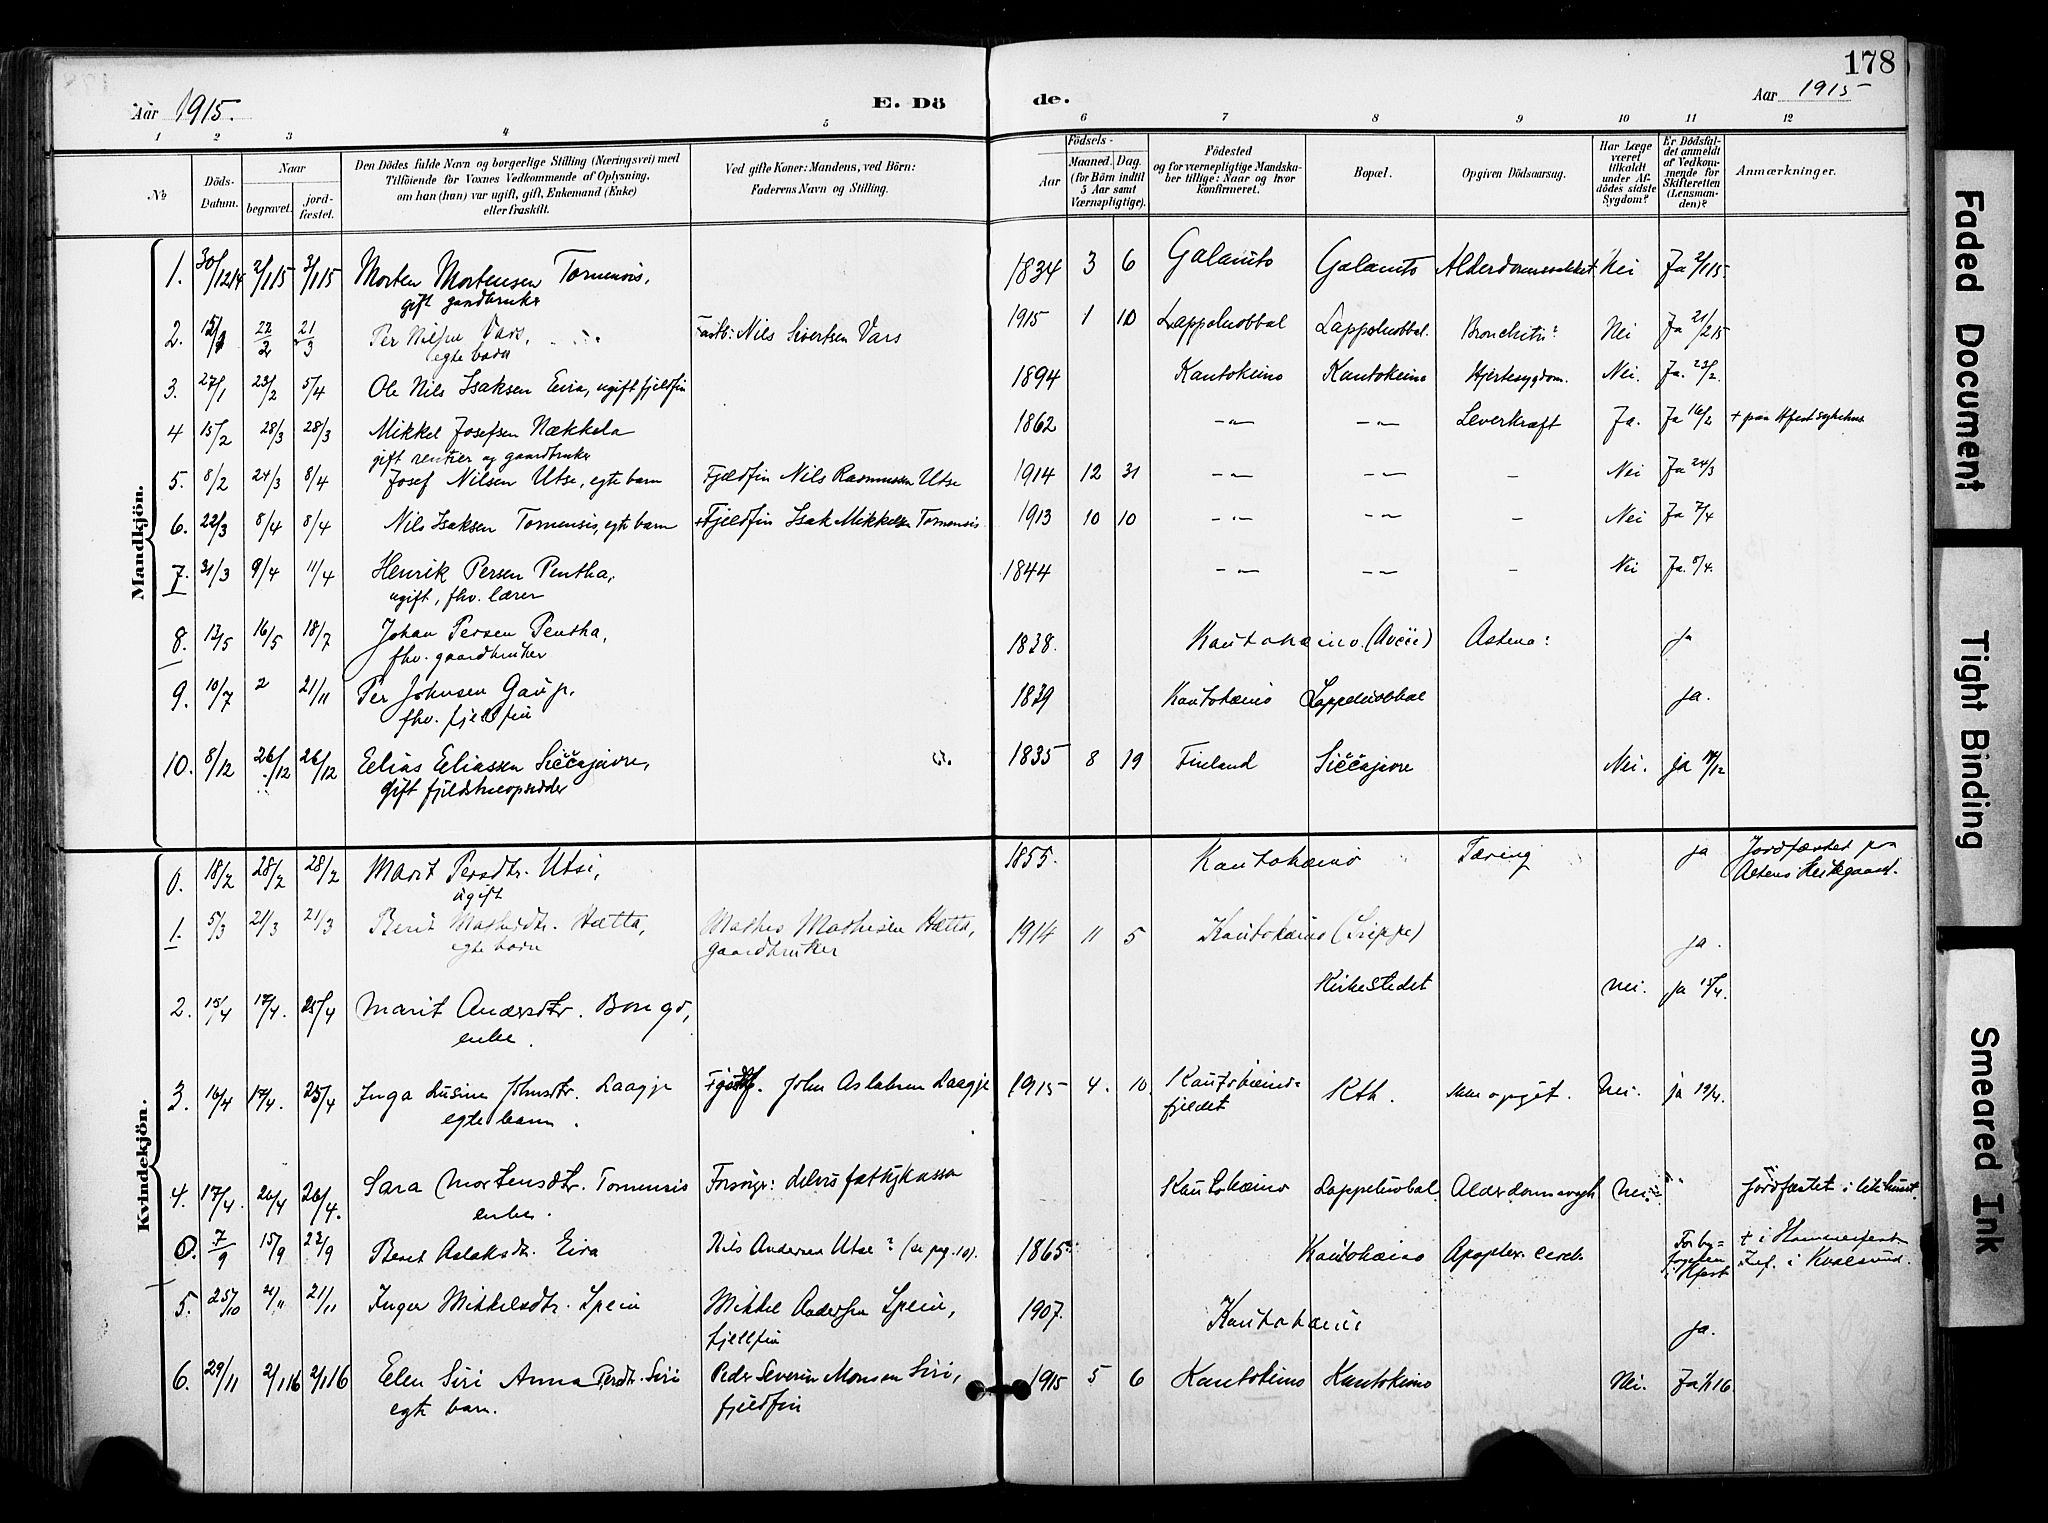 178
Aar 1915.
E. Dö
de.
Aar 1915
1 2 3 4 5 6 7 8 9 10 11 12
No
Döds-Datum.
Naar
begravet.
jordfæstet.
Den Dödes fulde Navn og borgerlige Stilling (Næringsvei) med
Tilföiende for Voxnes Vedkommende af Oplysning,
om han (hun) var ugift, gift, Enkemand (Enke)
eller fraskilt.
Ved gifte Koner: Mandens, ved Börn:
Faderens Navn og Stilling.
Födsels-
Aar
Maaned.
Dag.
(for Börn indtil
5 Aar samt
Værnepligtige).
Födested
og for værnepligtige Mandska-
ber tillige: Naar og hvor
konfirmeret.
Bopæl.
Opgiven Dödsaarsag.
Har Læge
været
tilkaldt
under Af-
dödes sidste
Sygdom?
Er Dödsfal-
det anmeldt
af Vedkom-
mende for
Skifteretten
(Lensman-
den)?
Anmærkninger.
Mandkjön.
1. 30/12 14 2/1 15 3/1 15 Morten Mortensen Tornensis, 1834 3 6 Galanito Galanito Nei Ja 2/1 15
gift gaardbruker
2. 22/2 21/3 Per Nilsen Vars, Nils Sivertsen Vars 1915 1 10 Lappoluobbal Lappoluobbal. Bronchitis? Nei Ja 21/2 15
egte barn
3. 27/1 23/2 5/4 Ole Nils Isaksen Eira, ugift fjeldfin 1894 Kautokeino Kautokeino Hjertesygdom. Nei. Ja. 23/2.
4 15/2 28/3 28/3 Mikkel Josefsen Nækkela 1862 -"- -"- Leverkræft Ja. Ja 16/2 + paa Hfest sykehus
gift rentier og gaardbruker
5. 8/2 24/3 8/4 Josef Nilsen Utse, egte barn Fjeldfin Nils Rasmussen Utse 1914 12 31 -"- -"- - Nei Ja 24/3
6. 22/3 8/4 8/4 Nils Isaksen Tornensis, egte barn Fjeldfin Isak Mikkelsen Tornensis 1913 10 10 -"- -"- - Nei Ja 7/4
7. 31/3 9/4 11/4 Henrik Persen Pentha, 1844 -"- -"- - Nei Ja. 8/4.
ugift, fhv. lærer
8. 13/5 16/5 18/7 Johan Persen Pentha, 1838. Kautokeino. Ja
fhv. gaardbruker
9. 10/7 2 21/11 Per Johnsen Gaup, 1839 Kautokeino Lappoluobbal ja.
fhv. fjellfin
10. 8/12 26/12 26/12 Elias Eliassen Siččajavre, 1835 8 19 Finland Siččajavre Nei. Ja
gift fjeldstueopsidder
Kvindekjön.
0. 18/2 28/2 28/2 Marit Persdtr. Utsi, 1855. Kautokeino Tæring ja Jordfæstet paa
ugift Altens Kirkegaard.
1. 5/3 21/3 21/3 Berit Mathisdtr. Hætta, Mathis Mathisen Hætta, 1914 11 5 Kautokeino ja.
egte barn gaardbruker
2. 15/4 17/4. 25/4 Marit Andersdtr. Bongo, Kirkestedet nei. ja 15/4.
enke.
3. 16/4 17/4. 25/4 Inga Johnsdtr. Laagje John Aslaksen Laagje 1915 4. 10. Kautokeino- Kth. nei. ja
egte barn. fjeldet
4. 17/4. 26/4. Sara Mortensdtr. Tornensis Forsörger: delvis fattigkassen Kautokeino Lappoluobal. nei. " jordfæstet i likhuset.
enke.
0. 7/9 15/9 22/9 Berit Aslaksdtr. Eira Nils Andersen Utse? (se pag. 10). 1865? Kautokeino Apoplex. cereb. + i Hammerfest
i Kvalsund.
5. 25/10 21/11 21/11 Inger Mikkelsdtr. Spein Mikkel Andersen Spein, 1907. Kautokeino ja.
fjellfin
6. 29/11 2/1 16 2/1 16 Elen Siri Anna Persdtr. Siri Peder Severin Monsen Siri, 1915 5 6 Kautokeino Kautokeino Nei. Ja
egte barn. fjeldfin
Faded Document
Tight Binding
Smeared Ink